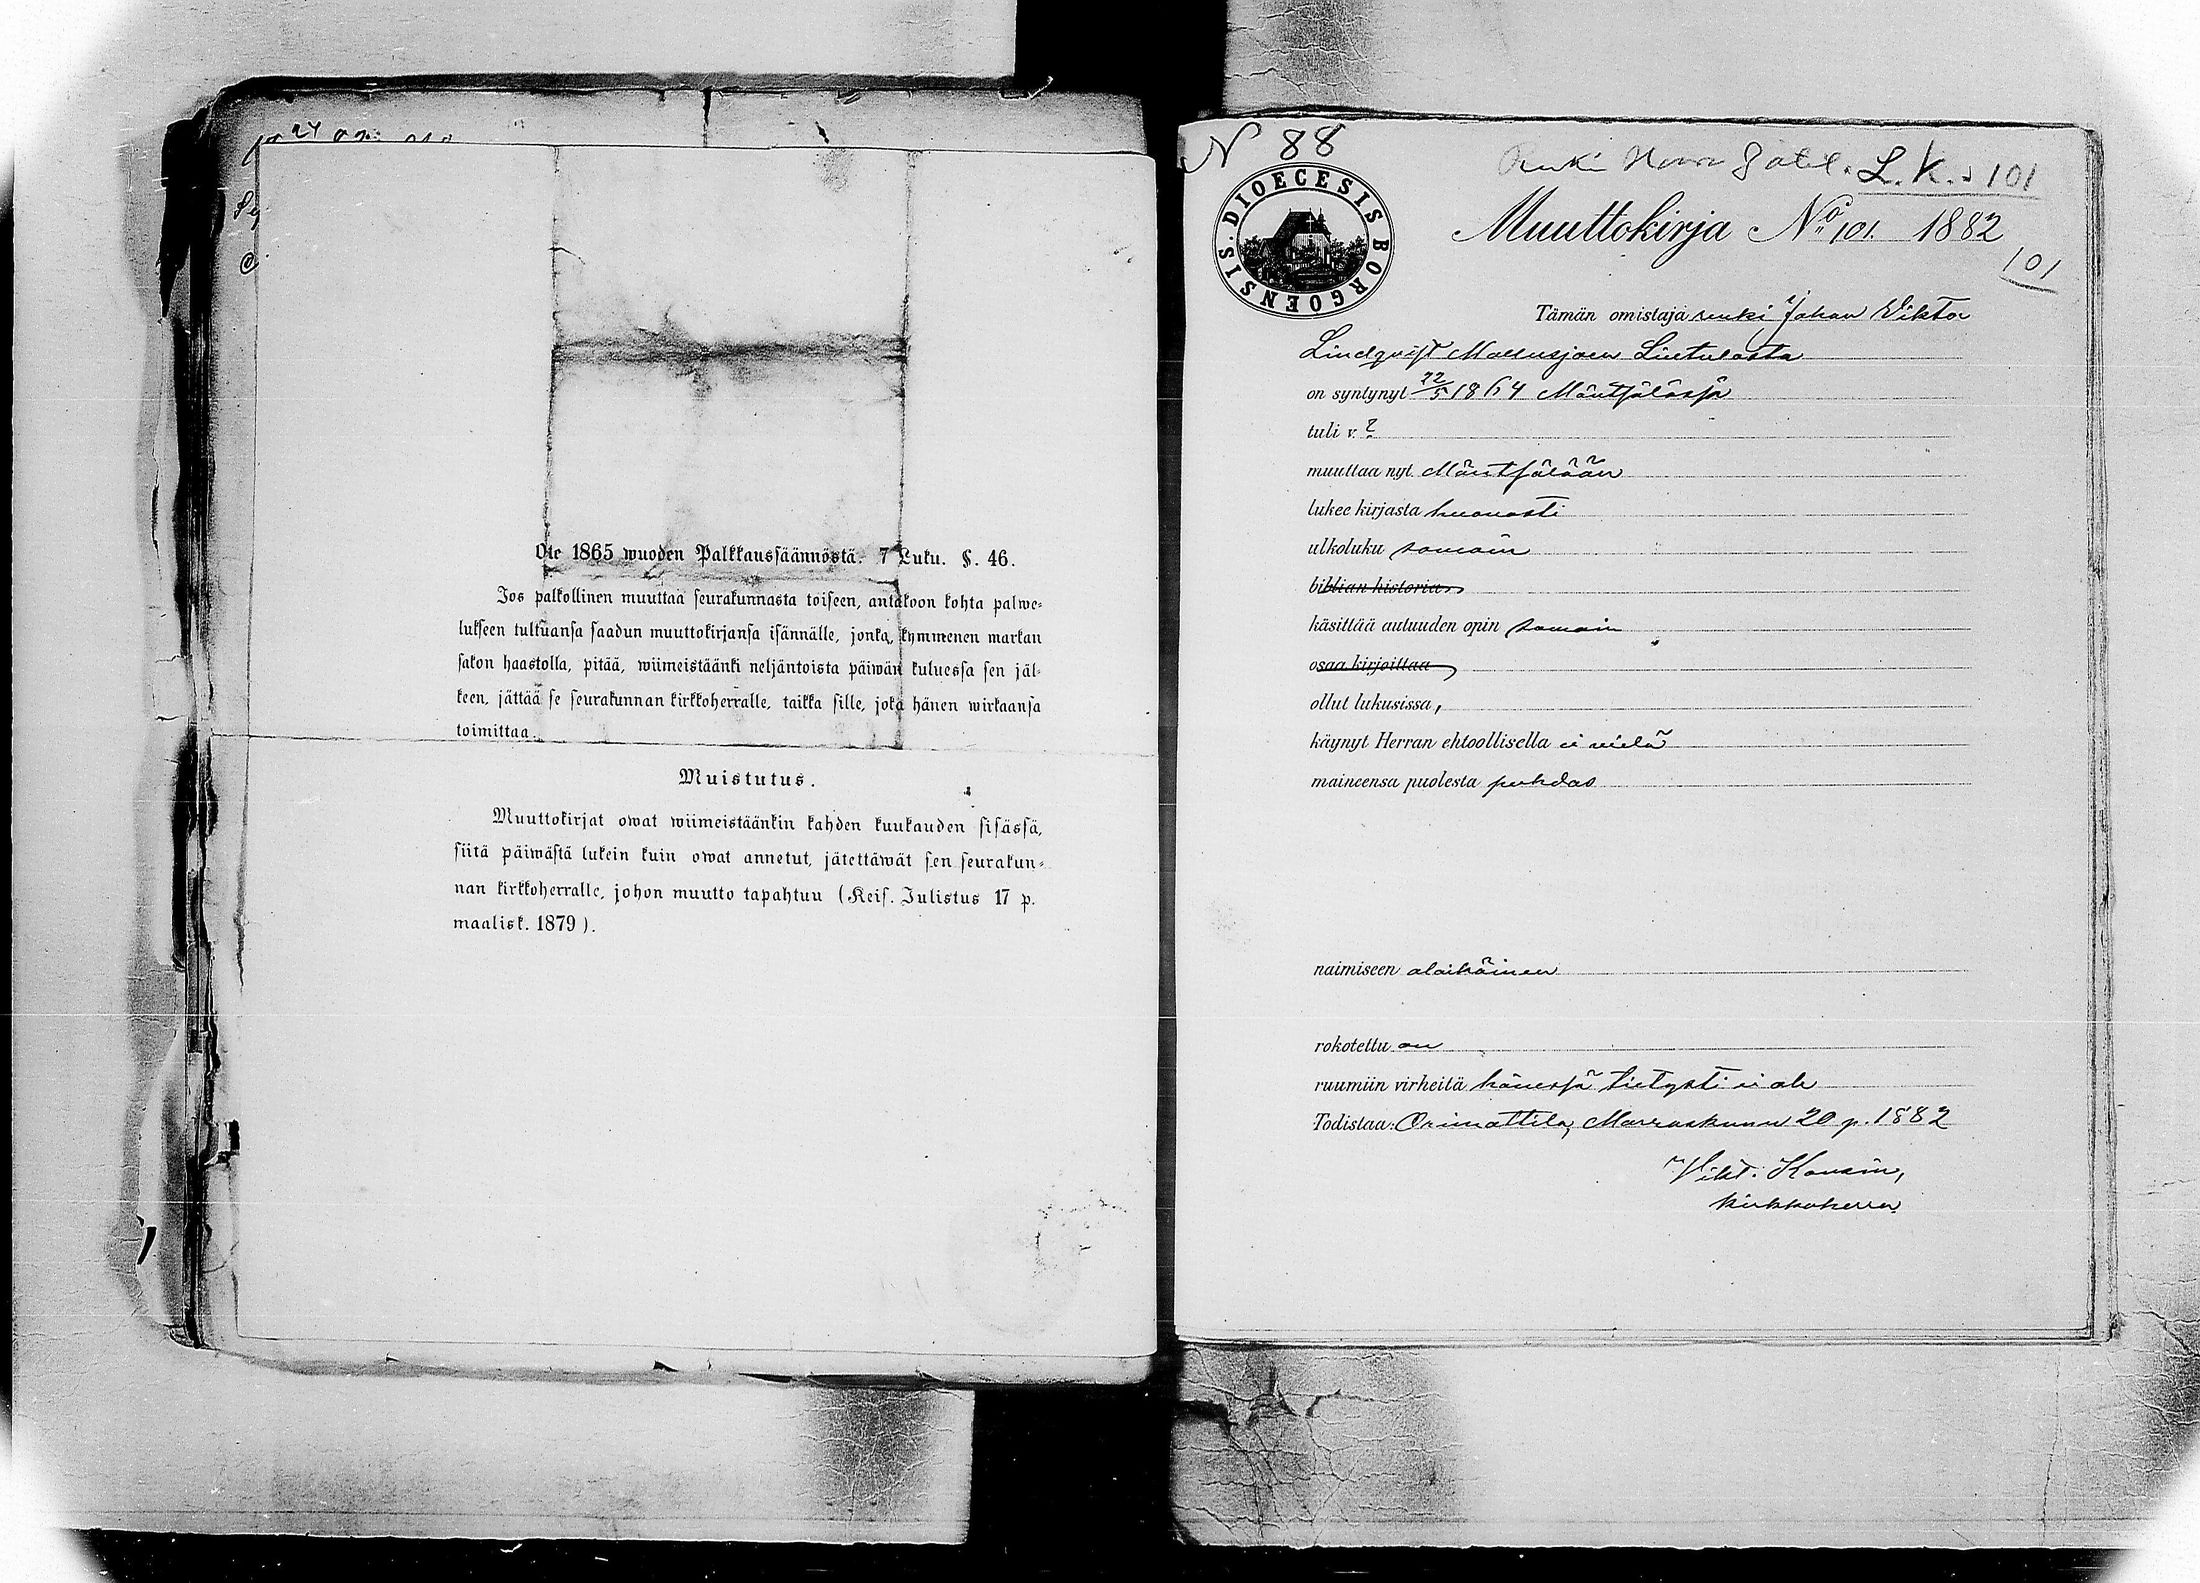 Ote 1865 wuoden Palkkaussäännöstä. 7 Luku. §. 46.
Jos palkollinen muuttaa seurakunnasta toiseen, antakoon kohta palwe-
lukseen tultuansa saadun muuttokirjansa isännälle, jonka, kymmenen markan
sakon haastolla, pitää, wiimeistäänki neljäntoista päiwän kuluessa sen jäl-
keen, jättää se seurakunnan kirkkoherralle, taikka sille, joka hänen wirkaansa
toimittaa.
Muistutus.
Muuttokirjat owat wiimeistäänkin kahden kuukauden sisässä,
siitä päiwästä lukein kuin owat annetut, jätettäwät sen seurakun-
nan kirkkoherralle, johon muutto tapahtuu (Keis. Julistus 17 p.
maalisk. 1879).
N 88
Renki L. K. s 101
DIOECESIS BORGOENSIS.
Muuttokirja No 101. 1882
101
Tämän omistaja renki Johan Viktor
Lindqvist Mallusjoen Lintulasta
on syntynyt 22/5 1864 Mäntsälässä
tuli v. ?
muuttaa nyt Mäntsälään
lukee kirjasta huonosti
ulkoluku samoin
biblian historiaa
käsittää autuuden opin samoin
osaa kirjoittaa
ollut lukusissa,
käynyt Herran ehtoollisella ei vielä
maineensa puolesta puhdas
naimiseen alaikäinen
rokotettu on
ruumiin virheitä hänessä tietysti ei ole
Todistaa: Orimattila, Marraskuun 20 p. 1882
Vikt.
kirkkoherra